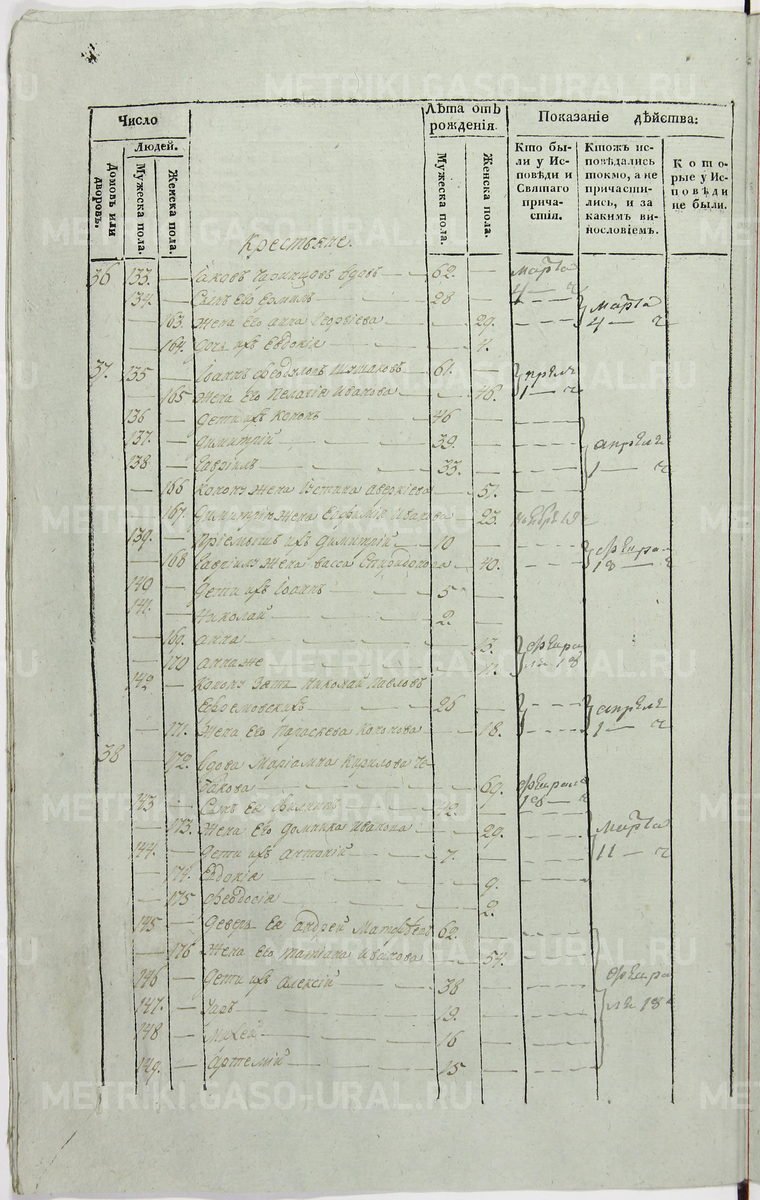 Число
Людей.
Домовъ или дворовъ.
Мужеска пола.
Женска пола.
Лѣта отъ рожденія.
Мужеска пола.
Женска пола.
Показаніе дѣйства:
Кто были у Исповѣди и Святаго причастія.
Ктожъ исповѣдались токмо, а не причастились, и за какимъ винословіемъ.
Которые у Исповѣди не были.
Крестьяне.
36 133. — Іаковъ вдовъ 62. — Марта
134. — Сынъ его Ермилъ 28 4 — ч Марта
163. Жена его Анна Георгіева 29. 4 — ч
164. Дочь ихъ Евдокія 4.
37. 135 — Іоаннъ 61. — апреля
165 Жена его Пелагія Иванова 46. 1 — ч
136 — Дети ихъ Кононъ 46
137. — Димитрій 39. апреля
138 — Гавріилъ 33. 1 — ч
166 Конон жена Устина Аверкіева 51.
167. Димитрія жена Евфимія Иванова 23.
139. — Пріемышъ ихъ Димитрій 10 февра
168 Гавріил жена Васса Спиридонова 40. 18 — ч
140 — Дети ихъ Іоаннъ 5
141. — Николай 2.
169. Анна 13. февра
170 Анна же 11. ля 18
142 — Конону зять Николай Павловъ
26 апреля
171. Жена его Параскева Кононова 18. 1 — ч
38 172. Вдова Маріамна Кирилова
69. февраля
143 — Сынъ ея Филипъ 42. 18 — ч
173. Жена его Домника Иванова 29. Марта
144. — Дети ихъ Антоній 7. 11 — ч
174. Евдокія 9.
175 Феодосія 2.
145 — Деверь ея Андрей Матвѣевъ 62.
176 Жена его Татіана Иванова 54.
146 — Дети ихъ Алексій 38 февра
147. — 19. ля 18
148 — Михей 16
149. — Артемій 15
METRIKI.GASO-URAL.RU